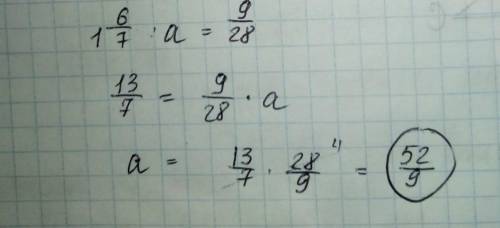 1 6/7 : a = 9/28
13/7 = 9/28 · a
a = 13/7 · 28/9 ⁴ = 52/9